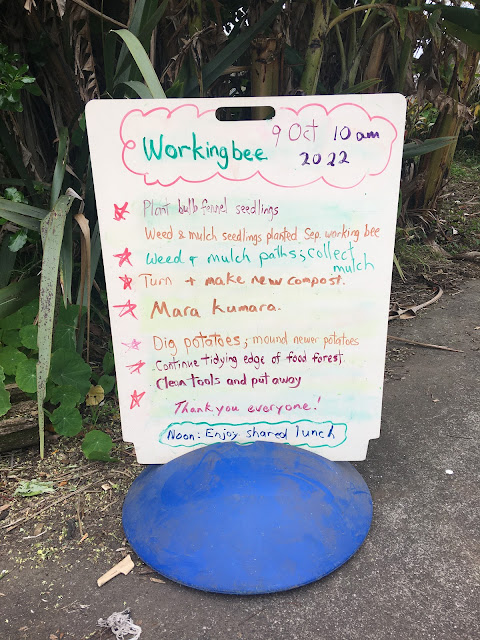 Workingbee 9 Oct 10 am
2022
Plant bulb fennel seedlings
Weed & mulch seedlings planted Sep. working bee
Weed & mulch paths; collect
mulch
Turn + make new compost.
Mara Kumara.
Dig potatoes; mound newer potatoes
Continue tidying edge of food forest
Clean tools and put away
Thank you everyone!
Noon: Enjoy shared lunch